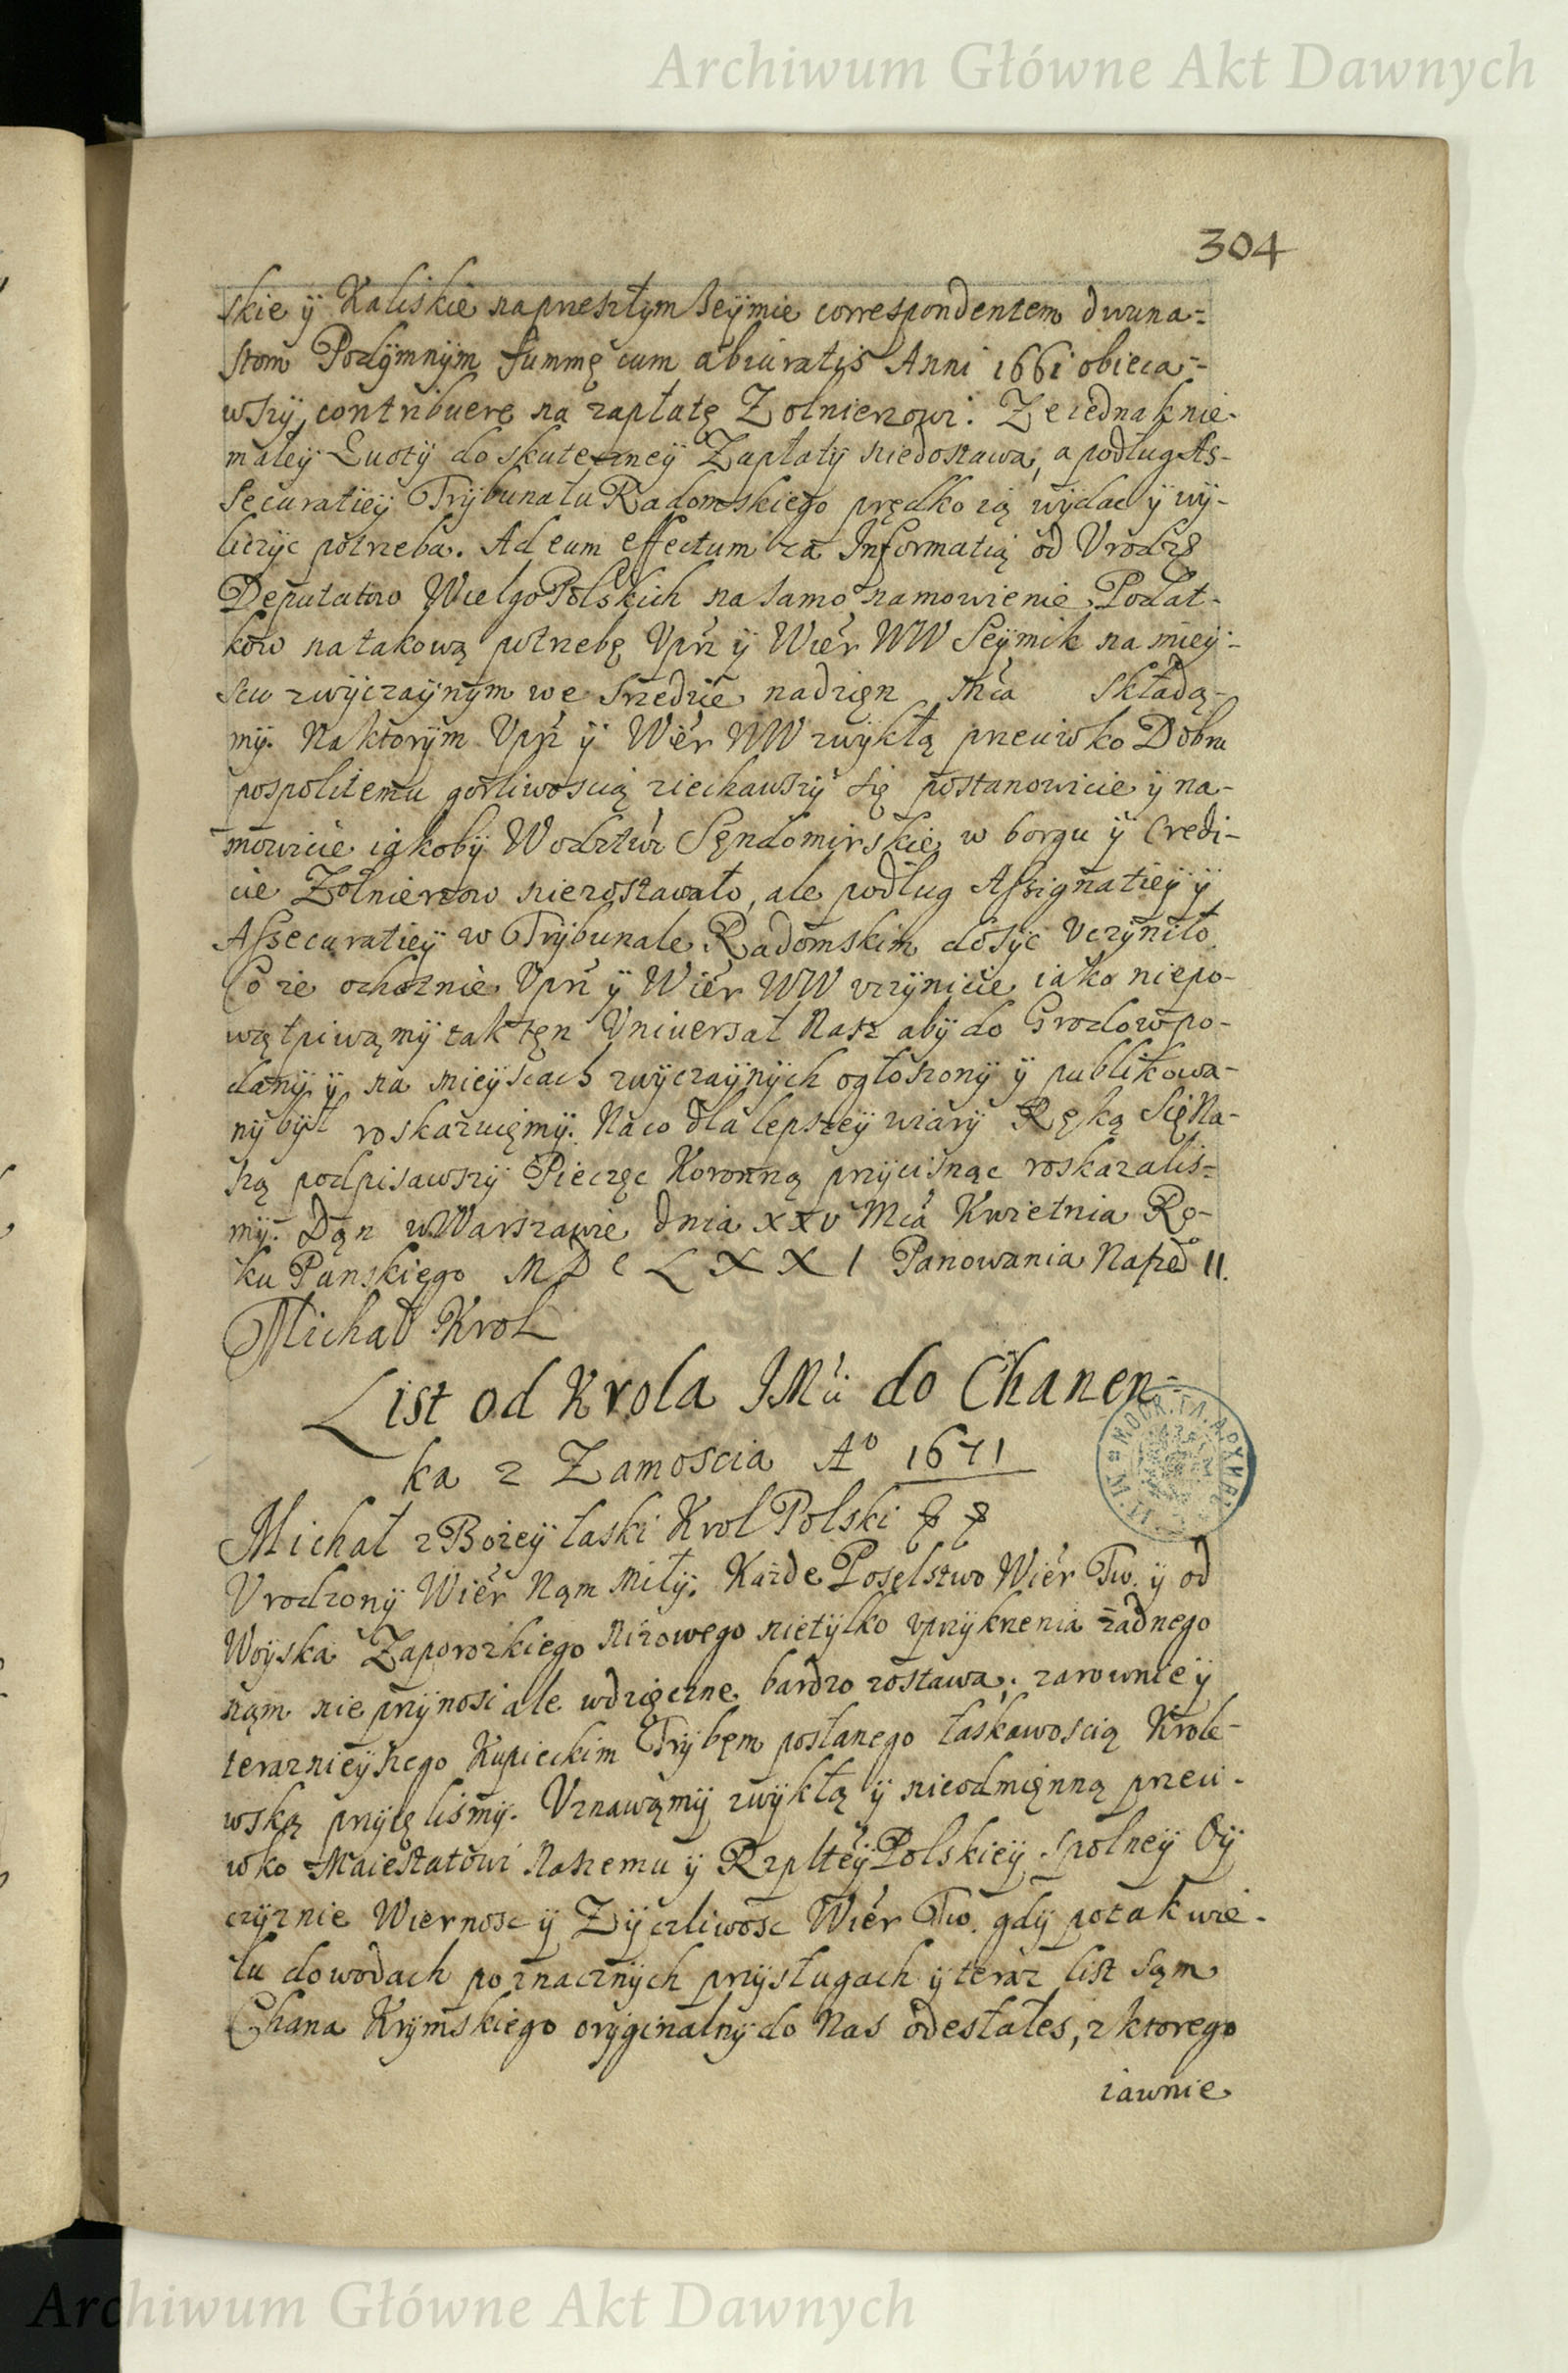 Archiwum Główne Akt Dawnych
304
skie ÿ Kaliskie naprzeszłym Seÿmie correspondentem dwuna=
stom Podÿmnÿm summę cum abiuratis Anni 1661 obieca=
wszÿ, contribuere na zapłatę Zołnierzowi. Ze iednak nie-
małeÿ Quotÿ do skuteczneÿ Zapłatÿ niedostawa, a podług As-
securatieÿ Trÿbunału Radomskiego prędko ią wÿdac ÿ wÿ-
liczÿc potrzeba. Ad eum effectum za Informatią od Vrodz
Deputatow WielgoPolskich na samo namowienie Podat-
kow natakową potrzebę Vprz ÿ Wier WW Seÿmik na mieÿ-
scu zwÿczaÿnÿm we Srzedzie nadzięn Mca Składa-
mÿ. Naktorÿm Vprz ÿ Wier WW zwÿkłą przeciwko Dobru
pospolitemu gorliwoscią ziechawszÿ się postanowicie ÿ na-
mowicie iakobÿ Wodztwo Sęndomirskie w borgu ÿ Credi-
cie Zołnierzow niezostawało, ale podług Assignatieÿ ÿ
Assecuratieÿ w Trÿbunale Radomskim dosÿc Vczÿniło.
Co ze ochotnie Vprz ÿ Wier WW vczÿnicie iako niepo-
wątpiwąmÿ tak tęn Vniversał Nasz abÿ do Grodow po-
danÿ ÿ na mieÿscach zwÿczaÿnÿch ogłoszonÿ ÿ publikowa-
nÿ bÿł roskazuięmÿ. Naco dla lepszeÿ wiarÿ Ręką Się Na-
szą podpisawszÿ Pieczęc Koronną przÿcisnąc roskazalis=
mÿ. Dąn w Warszawie dnia XXV Mca Kwietnia Ro-
ku Panskiego MDCLXXI Panowania Naszeo II.
Michał Krol
List od Krola JMci do Chanen=
ka z Zamoscia Ao 1671
Michał z Bożeÿ łaski Krol Polski
Vrodzonÿ Wier Nąm Miłÿ. Każde Poselstwo Wier Tw. ÿ od
Woÿska Zaporozkiego Nizowego nietÿlko vprzÿkrzenia żadnego
nąm nie przÿnosi ale wdzięczne bardzo zostawa; zarownie ÿ
teraznieÿszego Kupieckim Trÿbęm posłanego łaskawoscią Krole-
wską przÿięlismÿ. Vznawąmÿ zwÿkłą ÿ nieodmięnną przeci-
wko Maiestatowi Naszemu ÿ Rzpłteÿ Polskieÿ spolneÿ Oÿ
czÿznie Wiernosc ÿ Zÿczliwosc Wier Tw. gdÿ po tak wie-
lu dowodach po znacznÿch przÿsługach ÿ teraz list sąm
Chana Krÿmskiego orÿginalnÿ do Nas odesłałes, z ktorego
iawnie
Archiwum Główne Akt Dawnych